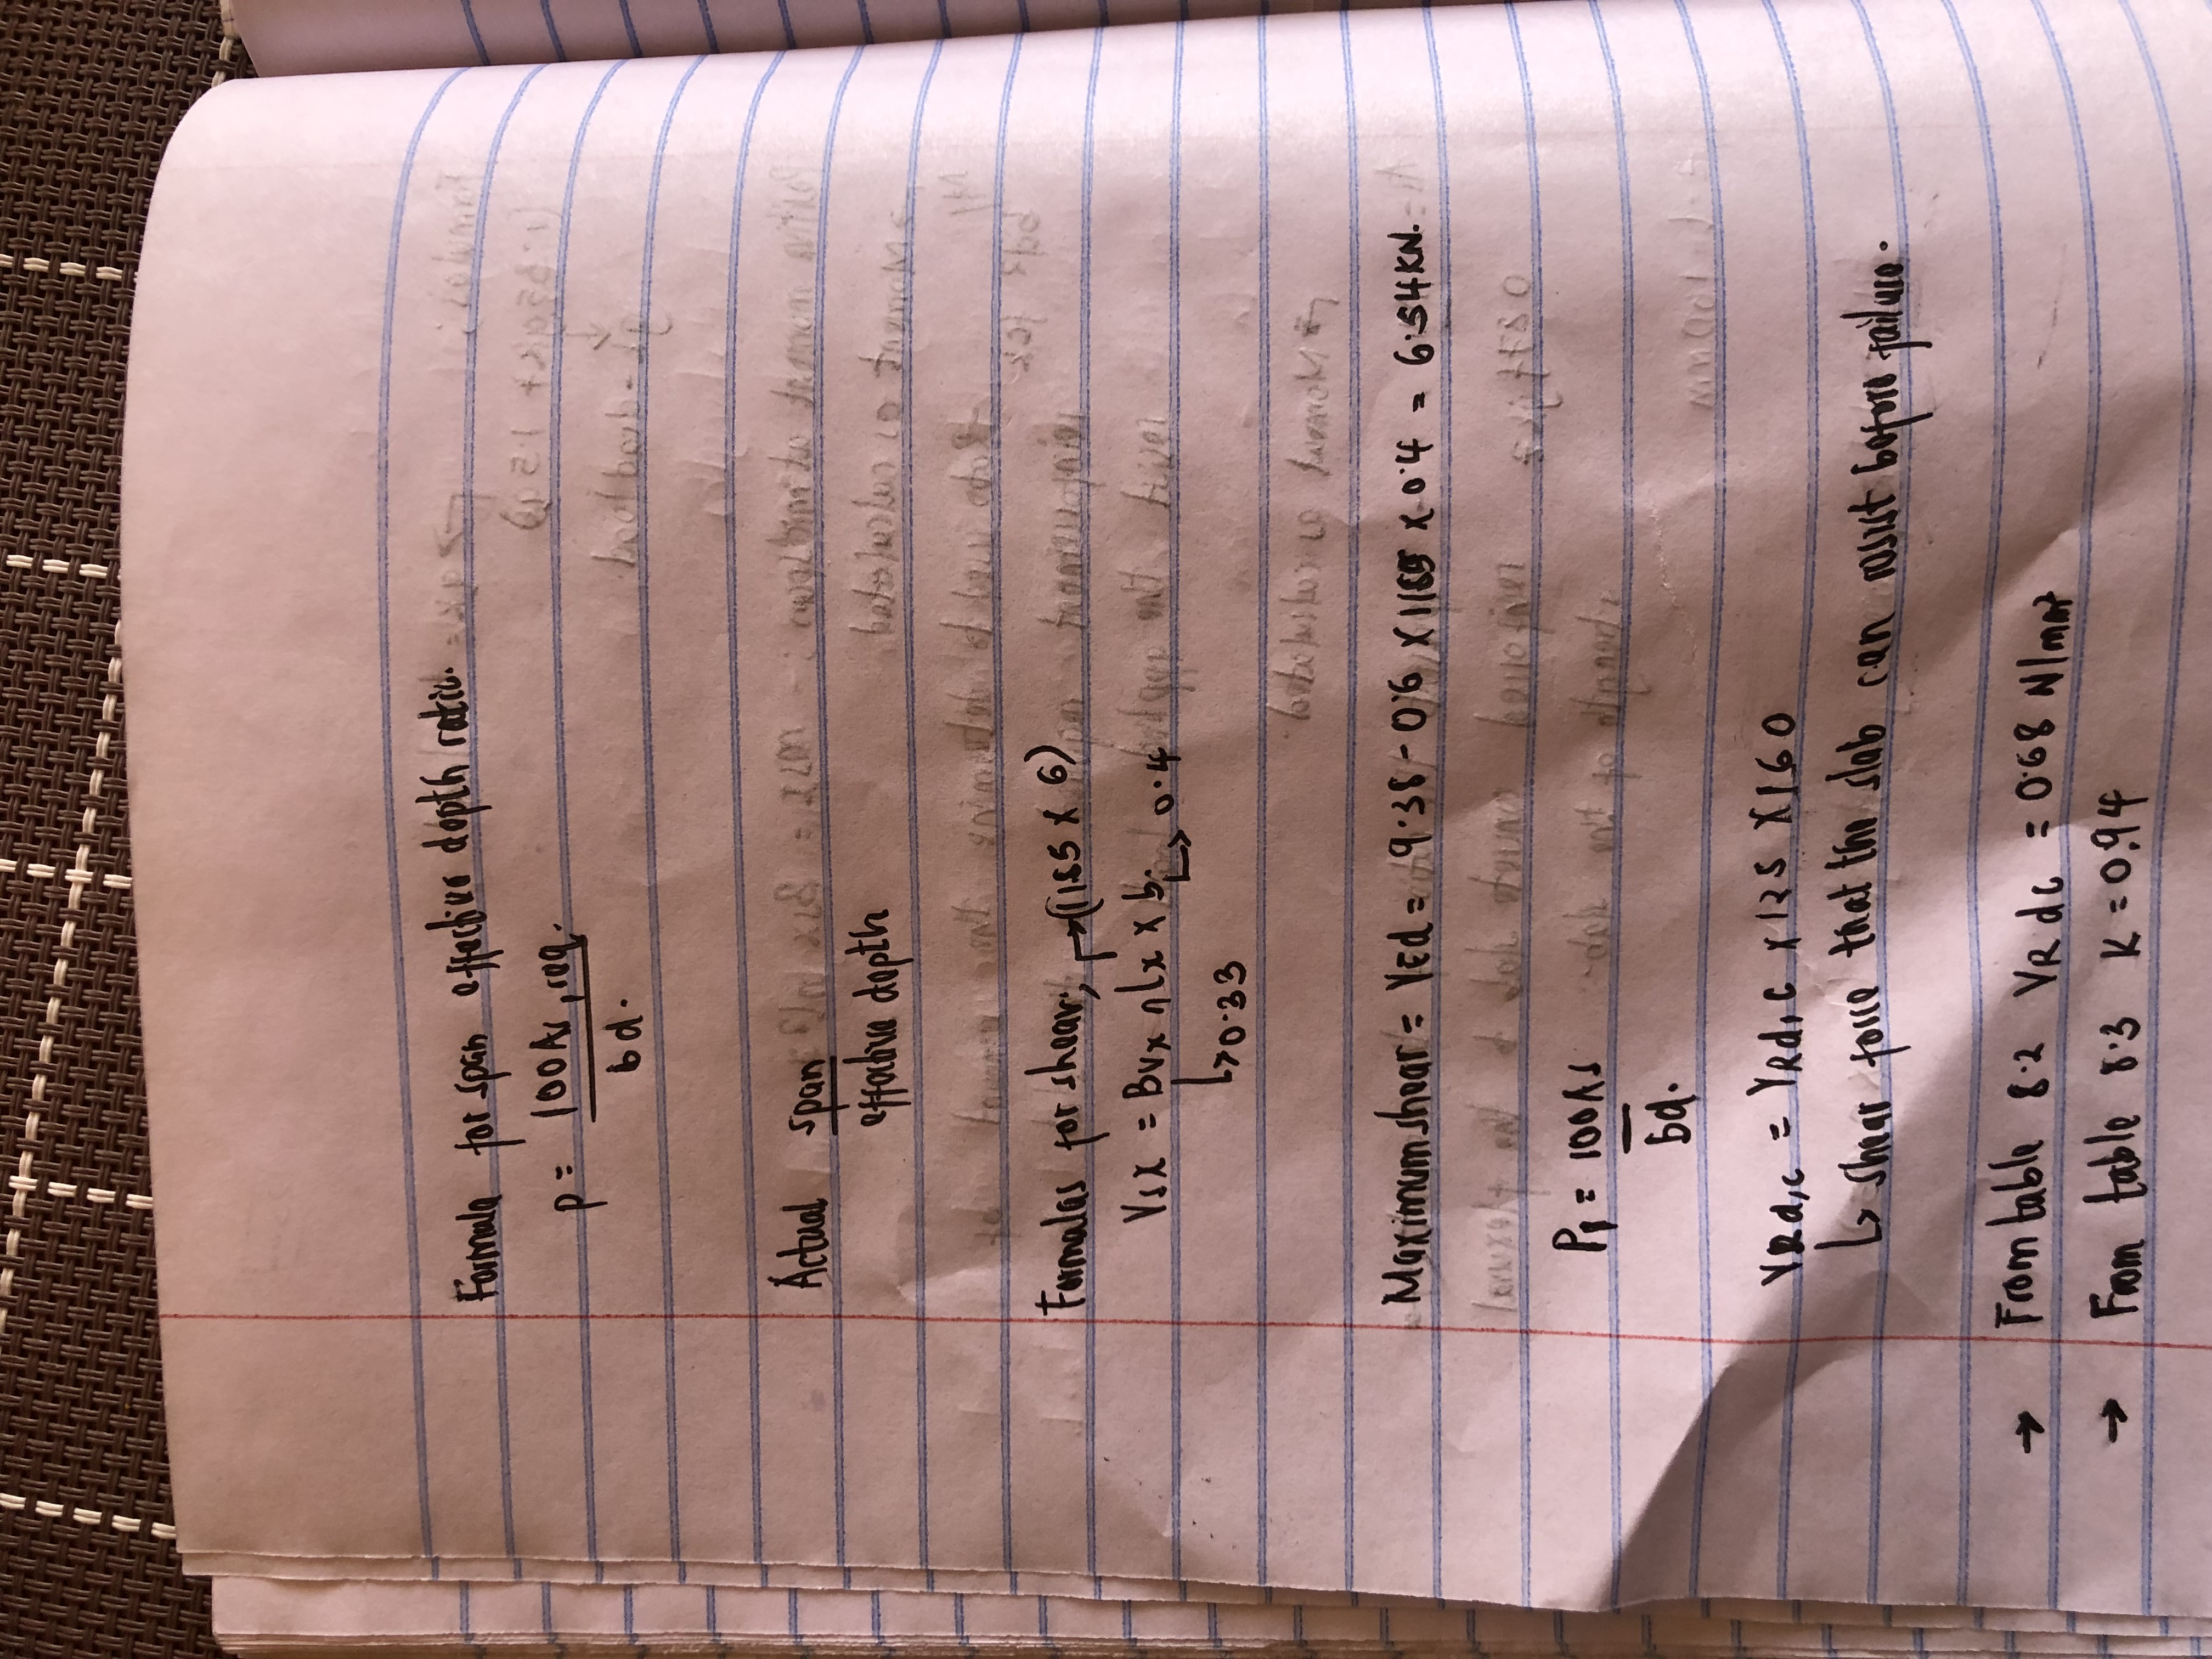 Formula for span effective depth ratio.
p = 100As,req.
bd.
Actual span
effective depth
Formulas for shear; → (11.85 x 6)
Vsx = Bvx nlx x b. → 0.4
↳ 0.33
Maximum shear = VEd = 9.38 - 0.6 x 11.85 x 0.4 = 6.54KN.
P1 = 100As
bd.
VRd,c = VRd,c x 125 x 160
↳ shear force that the slab can resist before failure.
→ From table 8.2 VRdc = 0.68 N/mm²
→ From table 8.3 K = 0.94